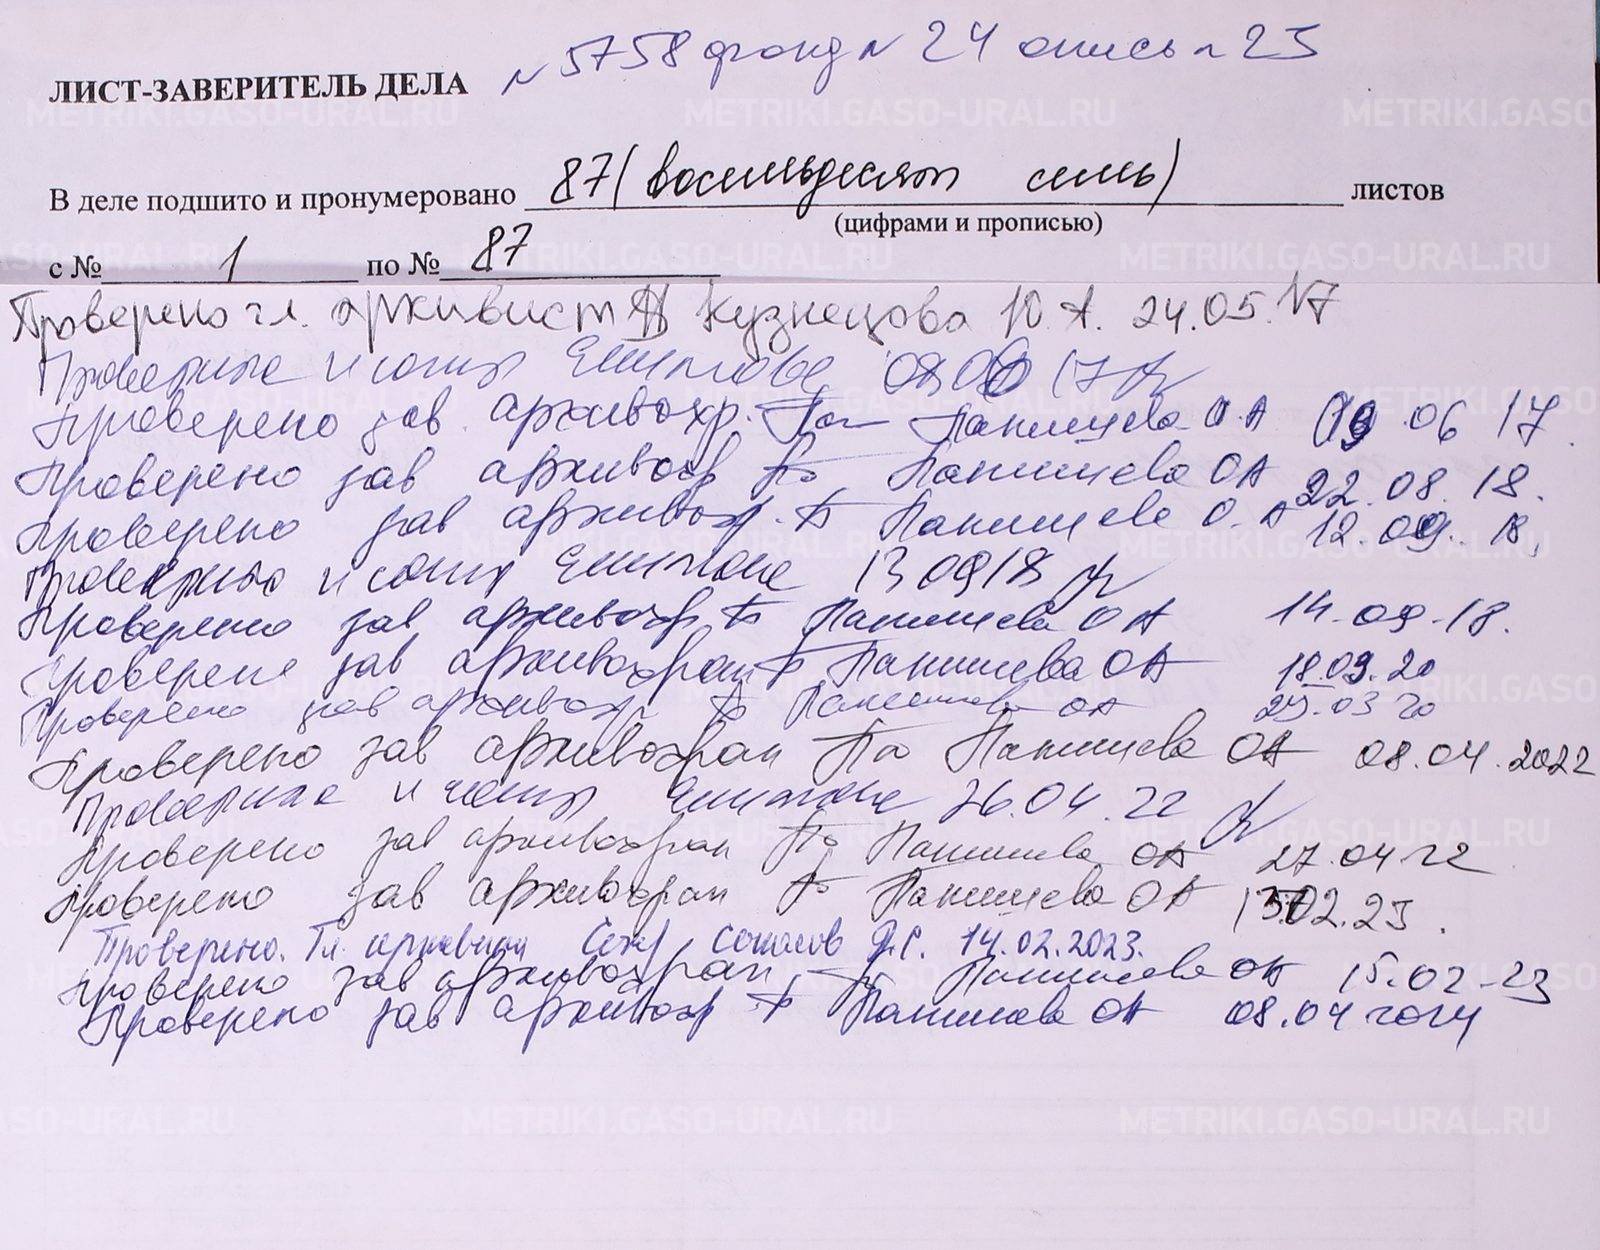 № 5758 фонд № 24 опись № 23
ЛИСТ-ЗАВЕРИТЕЛЬ ДЕЛА
В деле подшито и пронумеровано 87 (восемьдесят семь) листов
(цифрами и прописью)
с № 1 по № 87
Проверено гл. архивист Кузнецова Ю.А. 24.05.17
Проверено 17
Проверено зав. архивохр. Панишева О.А 09.06 17.
Проверено зав архивохр Панишева ОА 22.08.18.
Проверено зав архивохр. Панишева О.А 12.09.18.
Проверено 13 09 18
Проверено зав архивохр Панишева ОА 14.09.18.
Проверено зав архивохран Панишева ОА 18.03.20
Проверено зав архивохр Панишева ОА 03 20
Проверено зав архивохран Панишева ОА 08.04.2022
Проверено 26.04.22
Проверено зав архивохран Панишева ОА 27.04 22
Проверено зав архивохран Панишева ОА 02.23.
Проверено. Гл. архивист 14.02.2023.
Проверено зав архивохран Панишева ОА 15.02-23
Проверено зав архивохр Панишева ОА 08.04 2024
METRIKI.GASO-URAL.RU